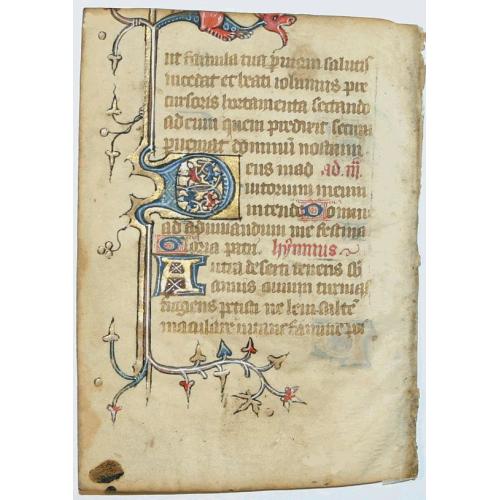 ut famula tua per viam salutis
incedat et beati iohannis pre
cursoris hortamenta sectando
ad eum quem predixit secura
perueniat dominū nostrum
Deus in ad ad iii.
iutorium meum
intende Domine
ad adiuuandum me festina
Gloria patri hymnus
Antra deserti teneris sb
annis ciuium turmas
fugiens petisti ne leui saltē
maculare uitam famine pos